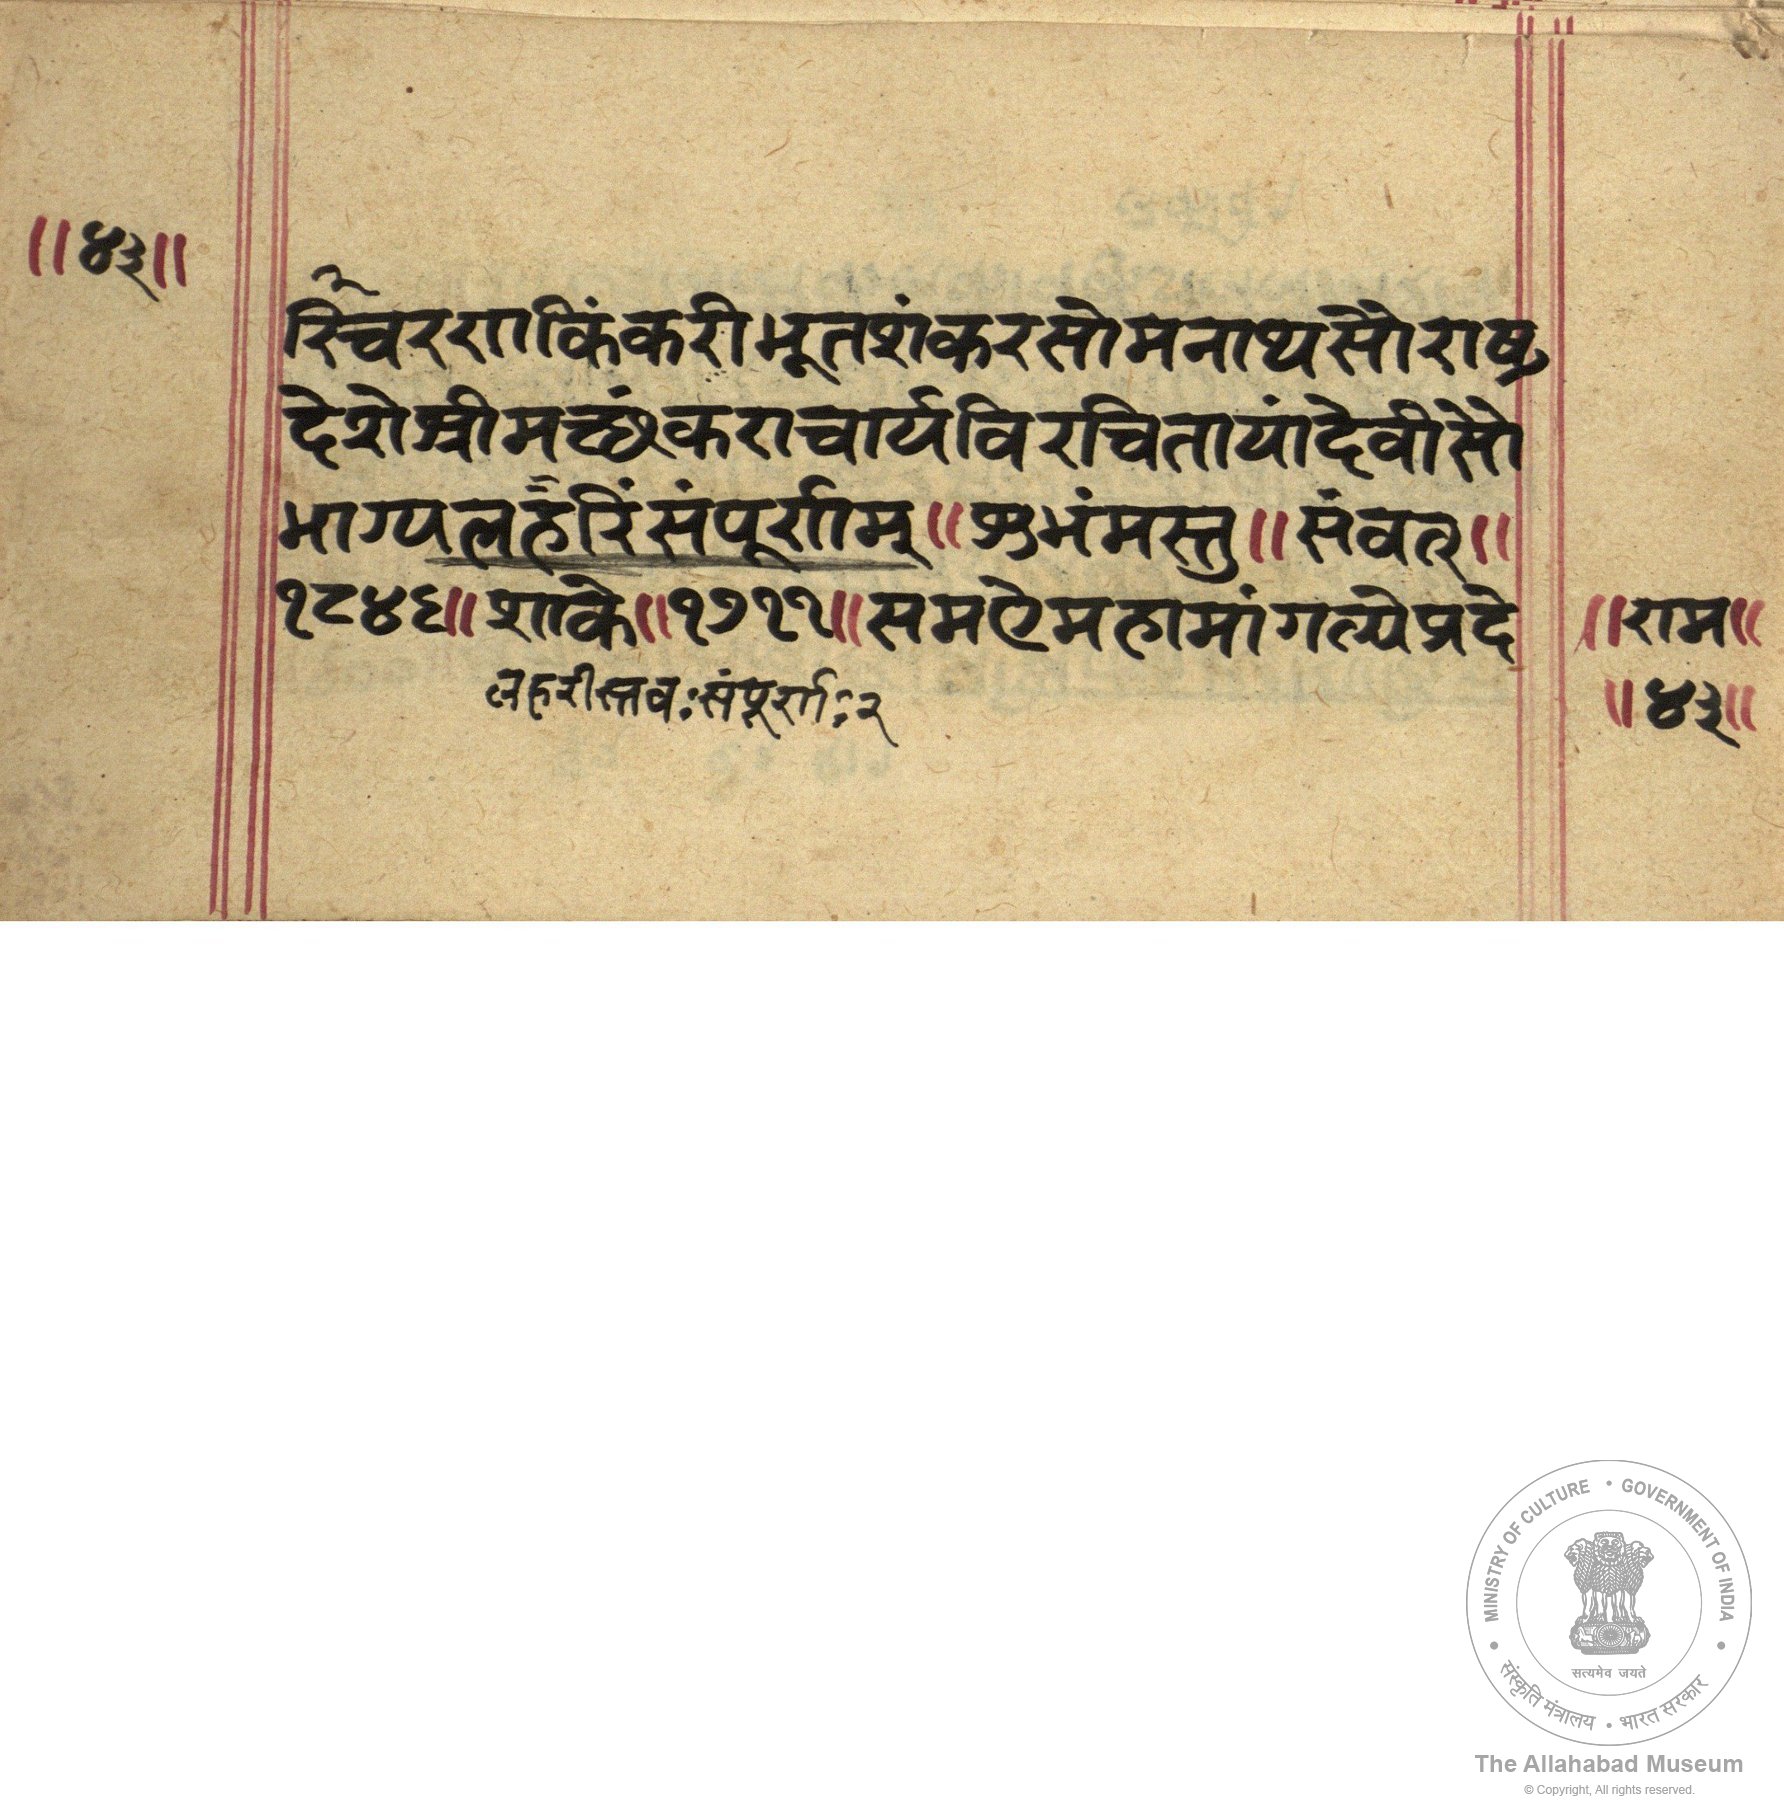 ॥४३॥
२
स्विरणकिंकरीभूतशंकरसोमनाथसौराष्ट्र
देशेश्रीमच्छंकराचार्यविरचितायांदेवीसौ
भाग्यलहरिंसंपूर्णम्॥शुभंमस्तु॥संवत्॥
१८४६॥शाके॥१७११॥समऐमहामांगल्येप्रदे
॥राम॥
लहरीस्तवःसंपूर्णः२
॥४३॥
MINISTRY OF CULTURE • GOVERNMENT OF INDIA
सत्यमेव जयते
संस्कृति मंत्रालय • भारत सरकार
The Allahabad Museum
© Copyright, All rights reserved.